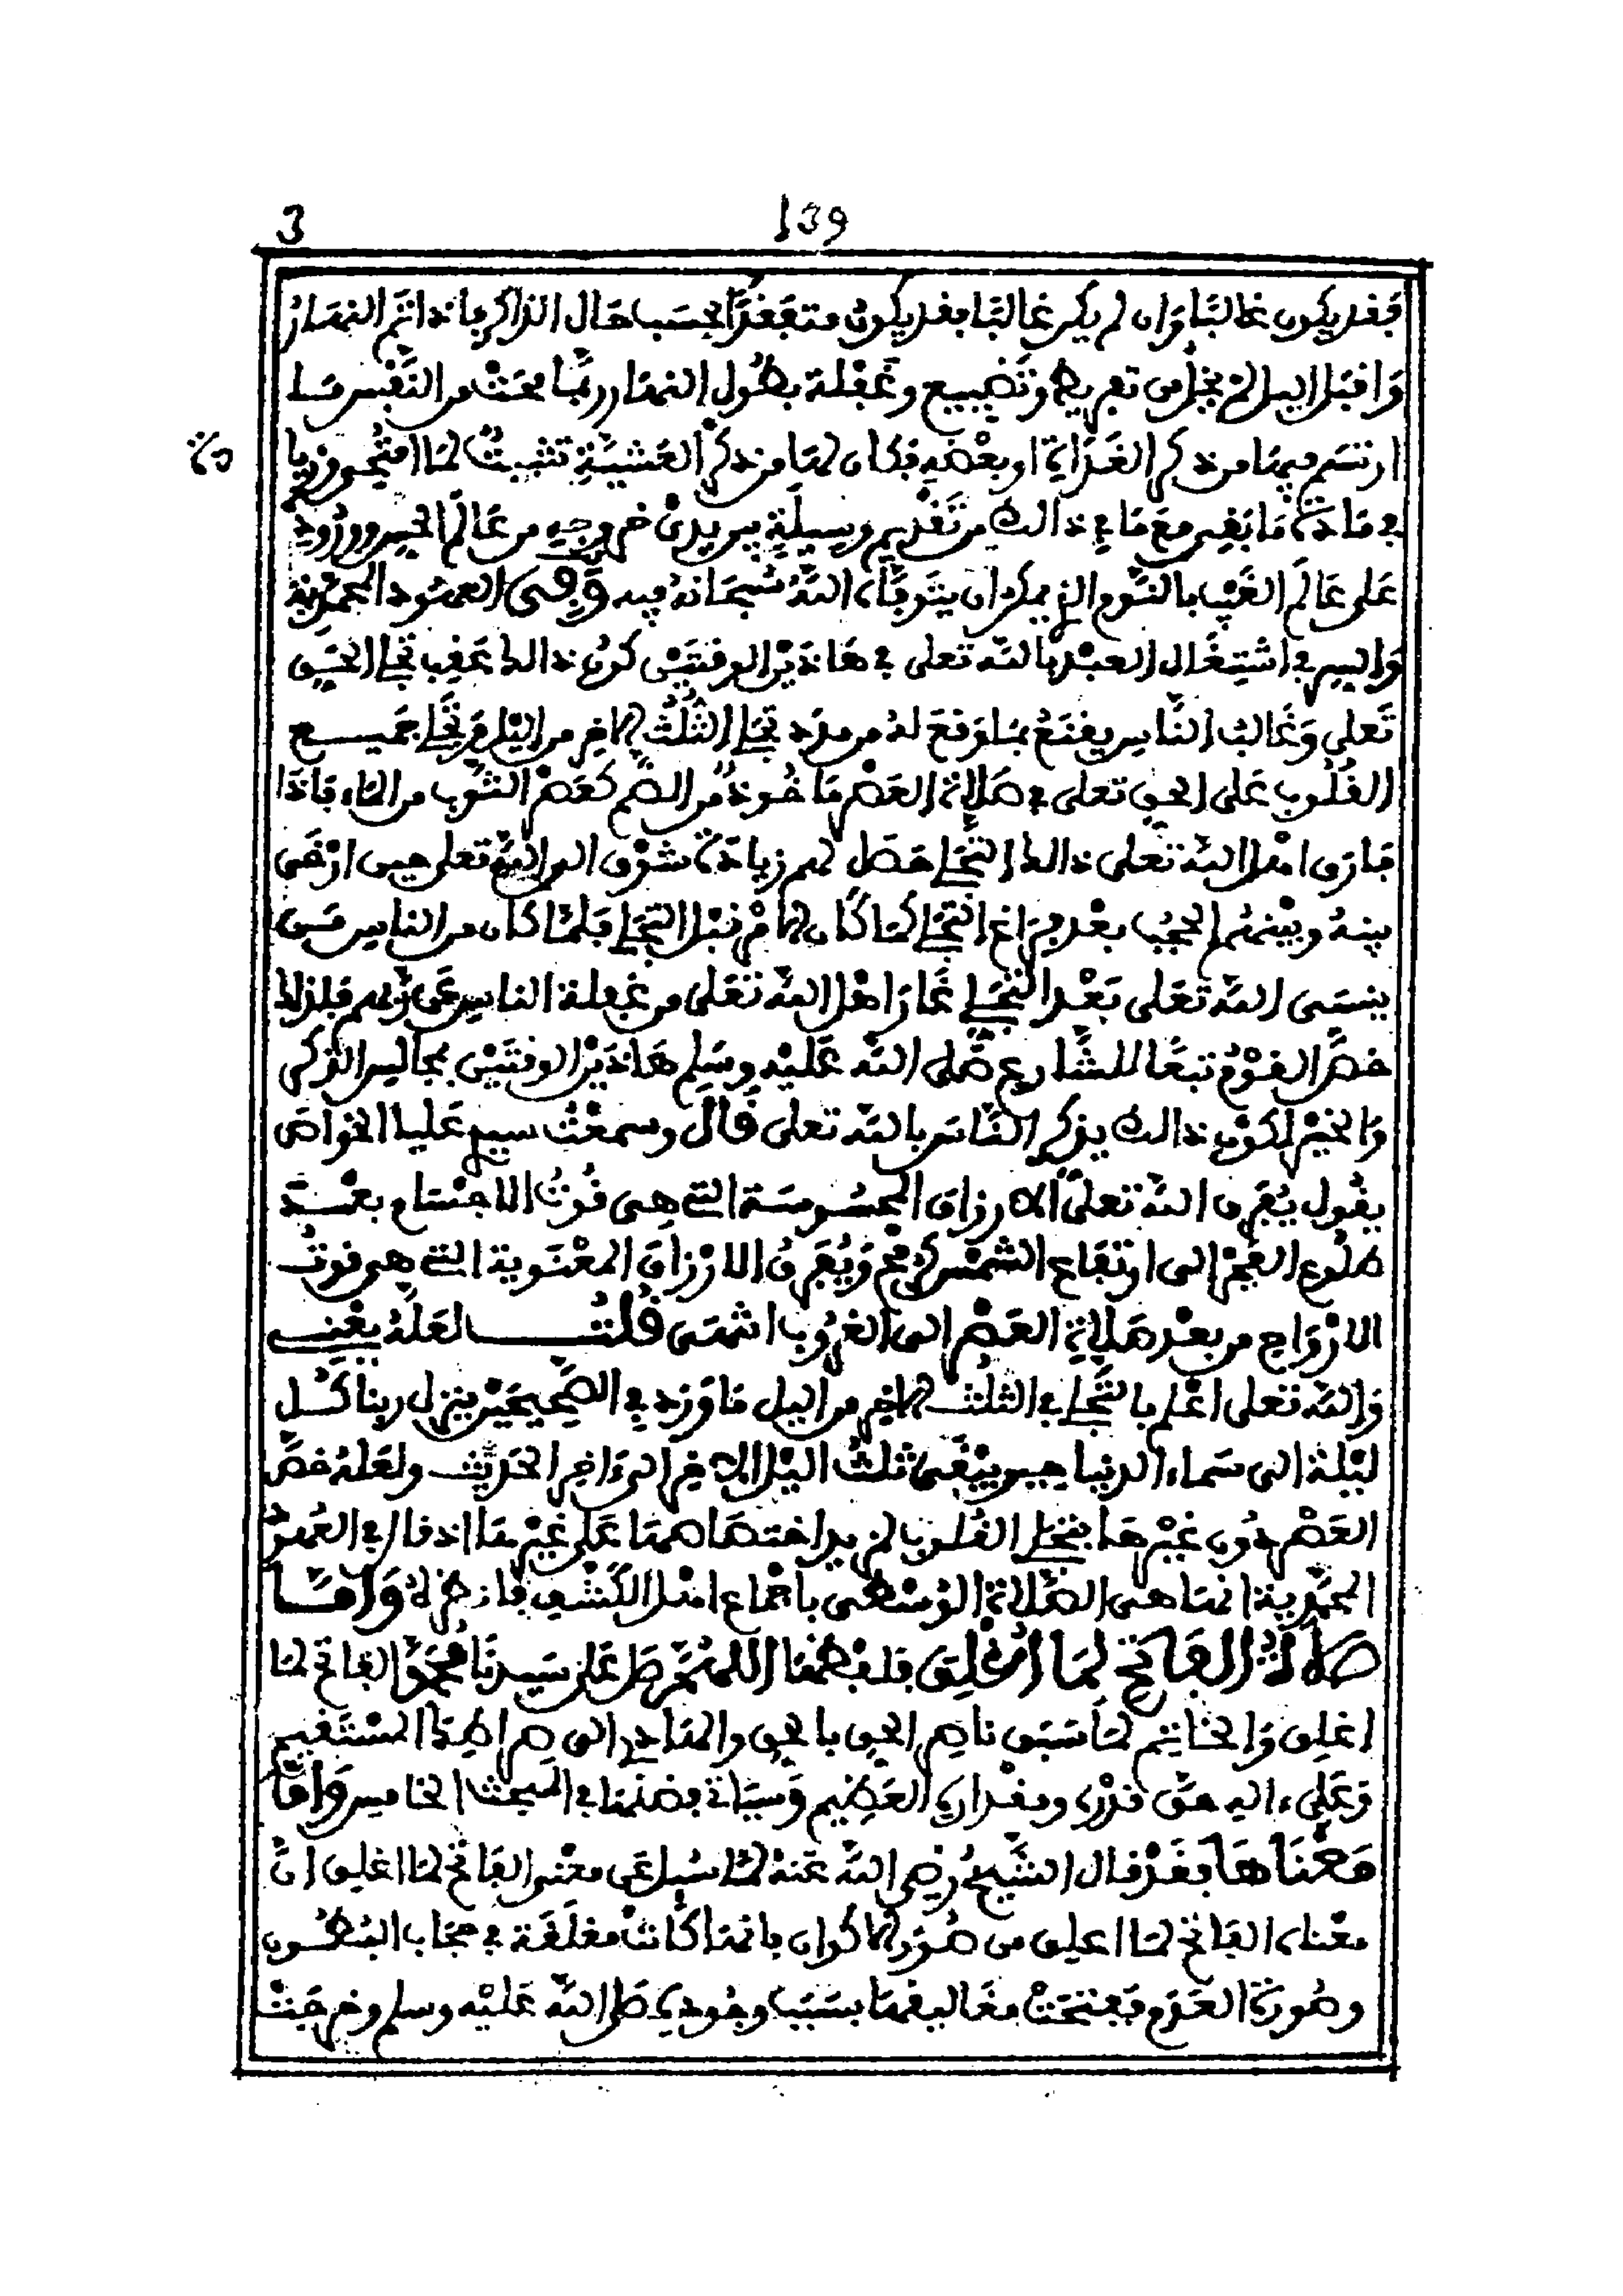 3 139
فقد يكون غالبا وان لم يكن غالبا فقد يكون متفقدا بحسب حال الذاكر فاذا انتم النهار
وَاقبَل اليل لم يخل من تفريط وتَضييع وغَفلة بطُول النهار وربَّما محَتْ من النَّفْس مَا
ارتسَم فيها من ذكر الغَدَاةِ او بعْضه فكان لها من ذكر العَشيَّةِ تثبيتٌ لما امتُحي وزيا
دة
في مَادة مَا بَقي مع مَا في ذالك من تَقْديم وسيلَةٍ بين يدَيْ خروجِه من عَالَم الحسِّ ووُرُودِه
عَلى عَالَم الغَيْب بالنَّوم الذي يمكن ان يتَوفَّاه اللّهُ سُبحَانهُ فيه وَفِى العهُود المحمَّدية
وَالسر في اشتِغَال العبْد بالله تعلى في هَاذَيْن الوقتَيْن كونُ ذالك عَقِب تجلي الحَق
تَعلى وَغَالبُ النَّاس يقنَعُ بمَا وَقعَ لهُ من مدَد تجَلي الثُّلُث الاخِر من اليْل وَتجَلي جَميع
القُلُوب عَلى الحق تعلى في صَلاة العَصْر مَاخُوذٌ من الضَّم كعَصْر الثَّوْب من الماء فَاذَا
فَارَق اهْل الله تعلى ذالك التجَلي حَصَل لهم زيَادَة شَوْق الى الله تعلى حين ارْخَى
بينهُ وبيْنهُم الحجُب بعْد فرَاغ التجَلي كما كَان الامْر قبْل التجَلي فَلمَّا كَان من الناس مَن
ينسَى اللّه تَعَلى بَعْد التجَلي غَارَ اهْل اللّه تَعَلى من غفلة الناس عَن رَبِّهم فلذلك
خصَّ القوْمُ تبعًا للشَّارع صَلى اللّه عَليْه وسَلم هَاذَيْن الوقتَيْن بمجَالس الذكر
وَالخيْر لكوْن ذالك يذكر النَّاسَ باللّه تعلى قَالَ وسمعْتُ سيدي عَليا الخواصَ
يقُول يُفَرق اللّه تعلى الارزاق المحْسُوسَة التي هِى قُوتُ الاجْسَام بعْد
طلُوع الفَجْر الى ارتفَاع الشمْس كرمح وَيُفَرقُ الارْزاقَ المعْنَوية التي هى قوتُ
الارْوَاح من بعْد صَلاةِ العَصْر الى الغرُوب انتهَى قُلتُ لعَلهُ يعْني
وَاللّه تعلى اعْلم بالتَّجلي في الثلُث الاخِر من اليل مَا وَرَد في الصَّحيحَيْن ينزل ربنا كُل
ليْلة الى سَماء الدنيا حين يبْقَى ثلثُ اليْل الاخِر الى ءَاخِر الحَديث ولعَلهُ خصَّ
العَصْر دُون غيْرهَا بتجَلي القُلوب لمزيد اختصَاصهَا عَلى غيْرهَا اذ قال في العُهود
المحمَّدية انها هى الصَّلاة الوُسْطى باجْماع اهْل الكَشْف فانظرْهُ وَامَّا
صَلاَةُ الفَاتِح لمَا اُغْلِقَ فلفْظهَا اللهُمَّ صَل عَلى سَيدنَا مُحمَّد الفَاتح لمَا
اغلِق وَالخاتِم لمَا سَبَق نَاصِر الحق بالحق والهَادي الى صرَاطِك المسْتَقيم
وَعَلى ءَاله حَقَّ قدْره ومقْدَاره العَظيم وَسيَاتي فضْلهَا في المبْحَث الخامس وَامَّا
مَعْنَاهَا فقَدْ قال الشَّيخُ رَضي اللّه عَنهُ لمَّا سُئل عَن معْنى الفَاتح لمَا اغلِق انَّ
معْناه الفَاتح لمَا اغلِق من صُوَر الاكوان فانها كَانَتْ مغلَقَة في حجَاب البُطُون
وصُورَة العَدَم ففتحَتْ مغَاليقهَا بسَبَب وجُوده صَلى اللّه عَليْه وسلم وخرجَتْ